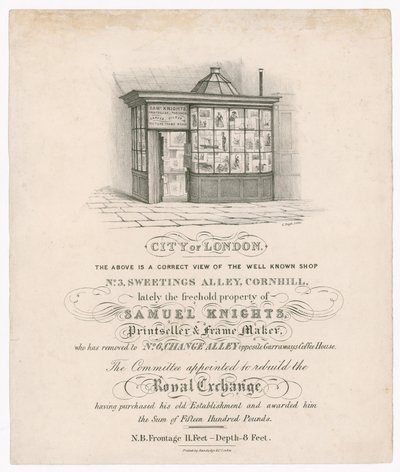 SAML. KNIGHTS,
CITY OF LONDON.
THE ABOVE IS A CORRECT VIEW OF THE WELL KNOWN SHOP
No. 3, SWEETINGS ALLEY, CORNHILL,
lately the freehold property of
SAMUEL KNIGHTS,
Printseller & Frame Maker,
who has removed to No. 6, CHANGE ALLEY opposite Garraways Coffee House.
The Committee appointed to rebuild the
Royal Exchange
having purchased his old Establishment and awarded him
the Sum of Fifteen Hundred Pounds.
N.B. Frontage 11. Feet – Depth – 8 Feet.